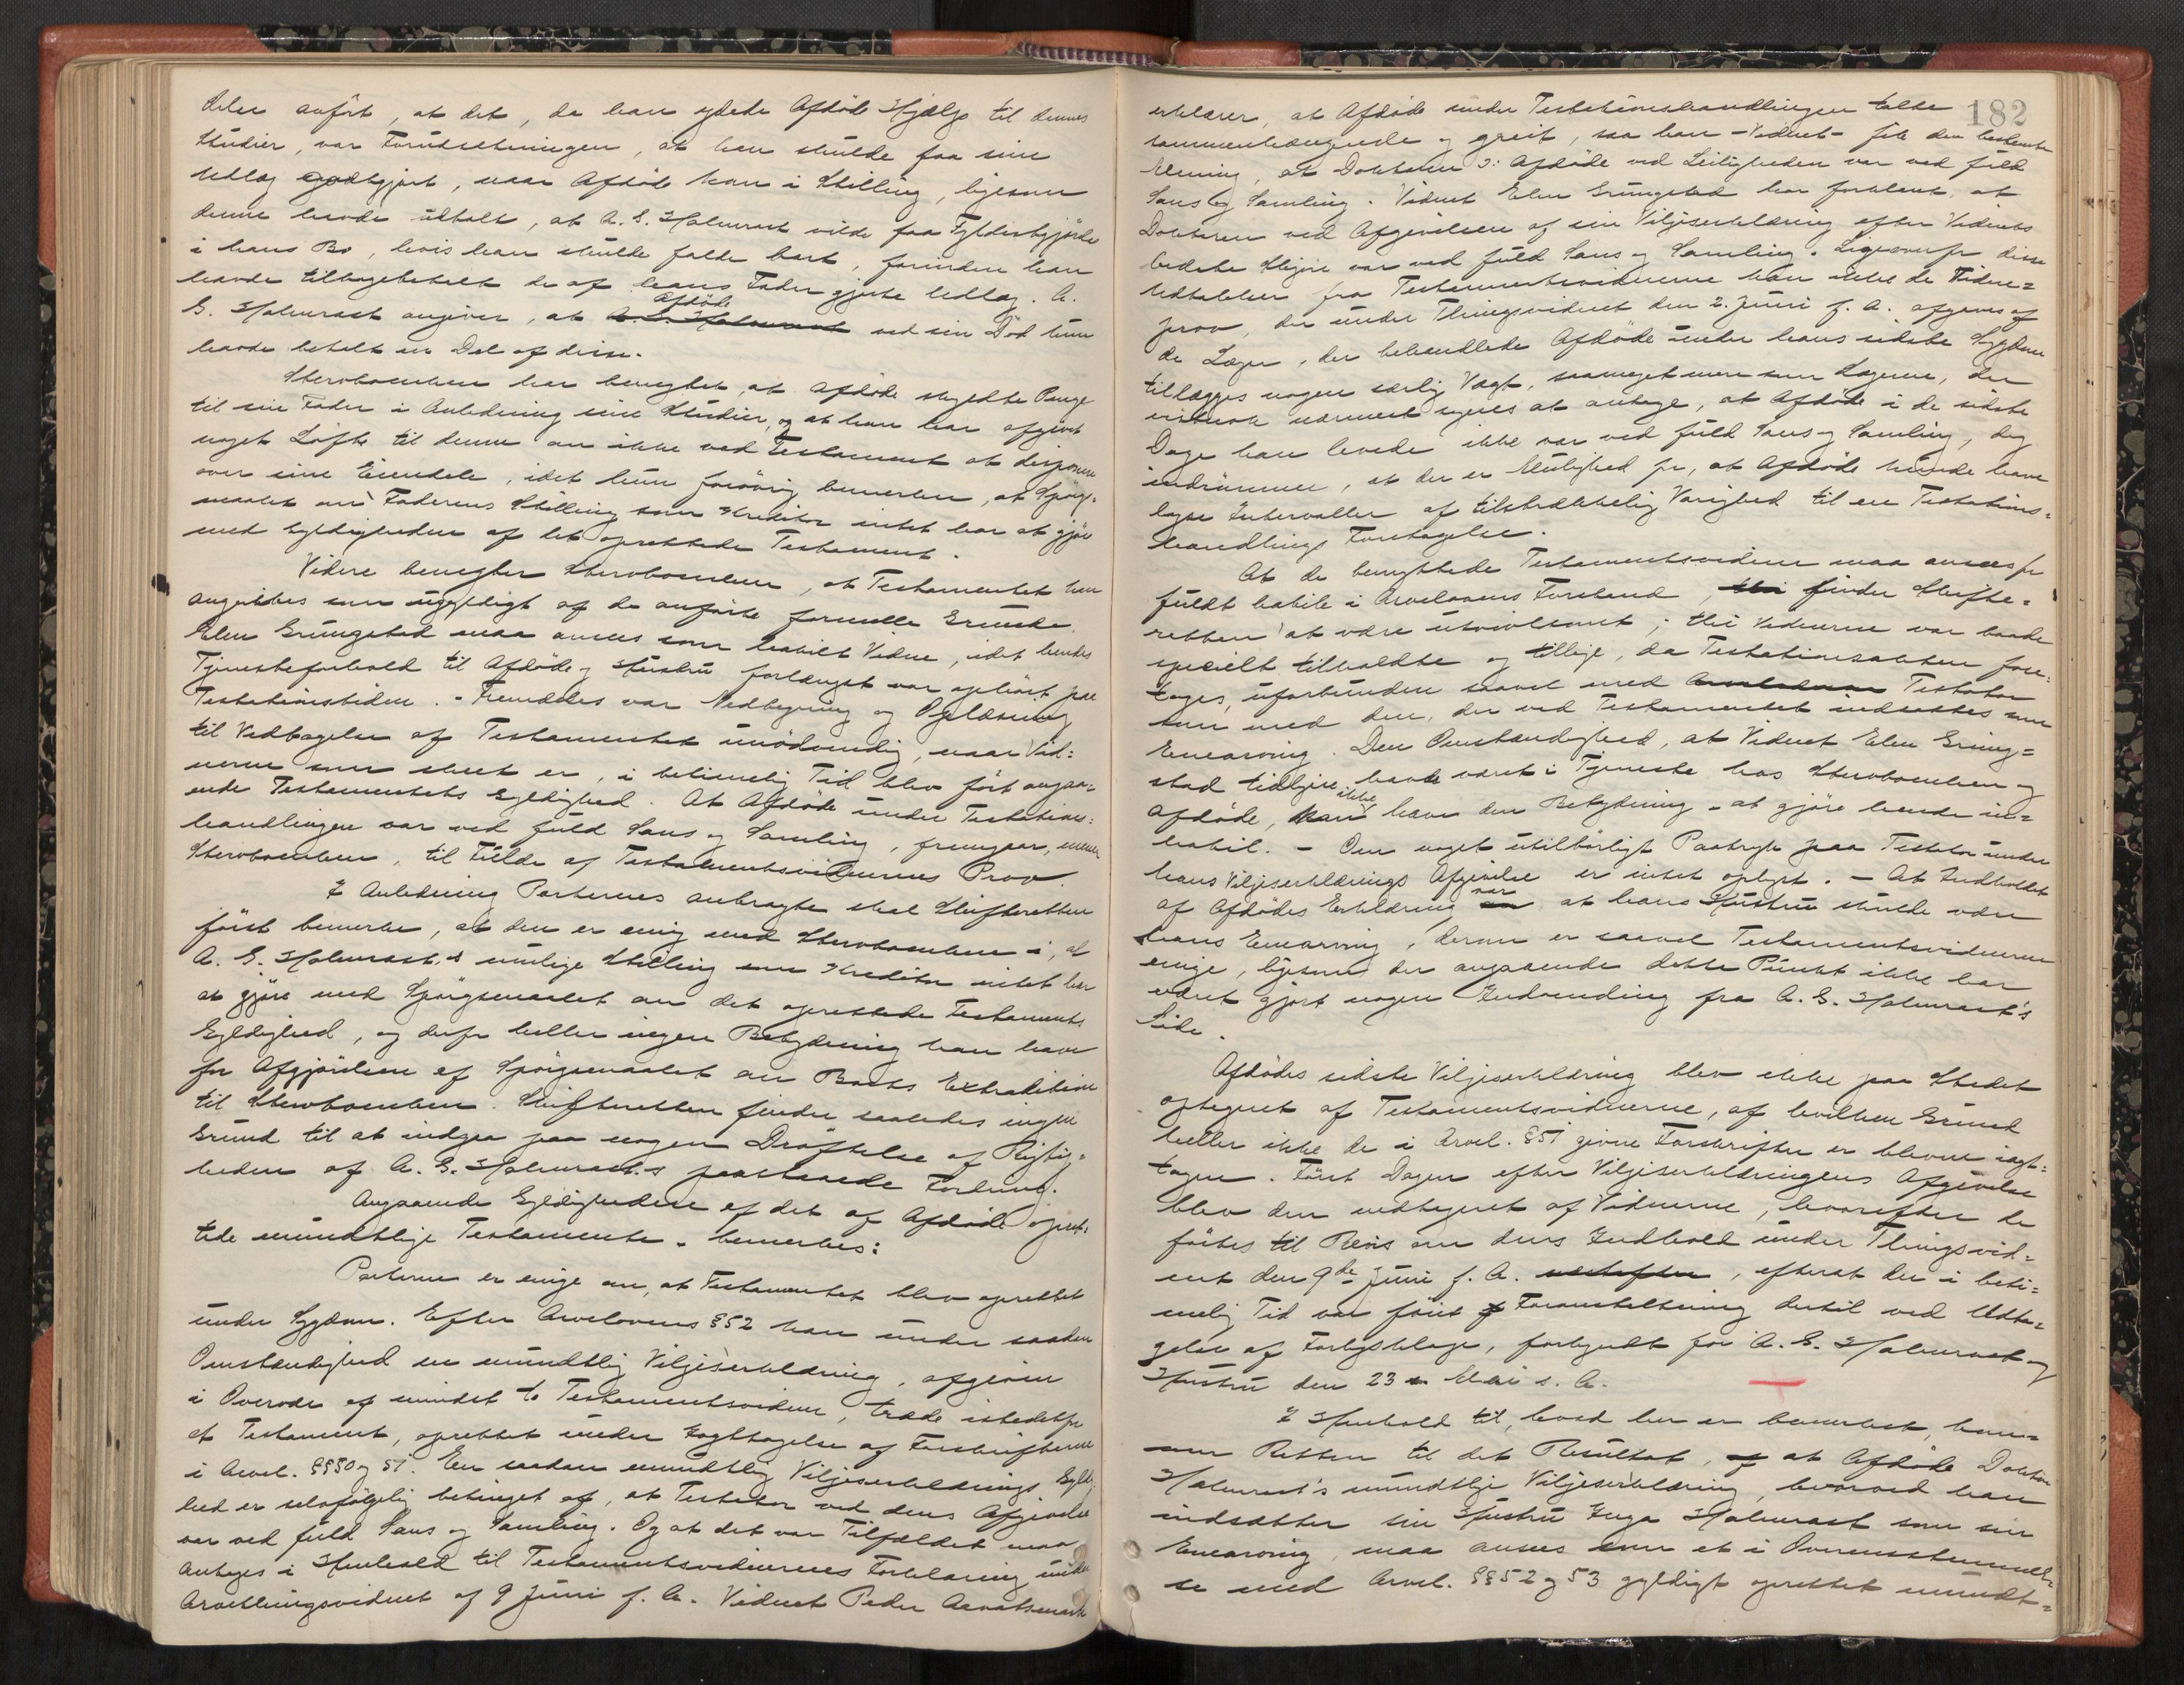 deler anført, at det, da han ydede Afdøde Hjælp til dennes
Studier, var Forudsetningen, at han skulde faa sine
Udlæg godtgjort, naar Afdøde kom i Stilling, ligesom
denne havde udtalt, at A. G. Holmrast vilde faa Fyldestgjørelse
i hans Bo, hvis han skulde falde bort, forinden han
havde tilbagebetalt de af hans Fader gjorte Udlæg. A.
G. Holmrast angiver, at Afdøde ved sin Død kun
havde betalt en Del af disse.
Stervboenken har benegtet, at Afdøde skyldte Penge
til sin Fader i Anledning sine Studier, og at han har afgivet
noget Løfte til denne om ikke ved Testament at disponere
over sine Eiendele, idet hun forøvrig bemerker, at Spørgs-
maalet om Faderens Stilling som Kreditor intet har at gjøre
med Gyldigheden af det oprettede Testament.
Videre benegter Stervboenken, at Testamentet kan
angribes som ugyldigt af de anførte formelle Grunde.
Elen Grungstad maa ansees som habilt Vidne, idet hendes
Tjenesteforhold til Afdøde og Hustru forlængst var ophørt paa
Testationstiden. - Fremdeles var Nedtegning og Oplæsning
til Vedtagelse af Testamentet unødvendig, naar Vid-
nerne som skeet er, i betimelig Tid blev ført angaa-
ende Testamentets Gyldighed. At Afdøde under Testations-
handlingen var ved fuld Sans og Samling, fremgaar, mener
Stervboenken, til Fulde af Testamentsvidnernes Prov.
I Anledning Parternes anbragte skal Skifteretten
først bemerke, at den er enig med Stervboenken i, at
A. G. Holmrast's mulige Stilling som Kreditor intet har
at gjøre med Spørgsmaalet om det oprettede Testaments
Gyldighed, og derfor heller ingen Betydning kan have
for Afgjørelsen af Spørgsmaalet om Boets Extradition
til Stervboenken. Skifteretten finder saaledes ingen
Grund til at indgaa paa nogen Drøftelse af Rigtig-
heden af A. G. Holmrast's paastaaede Fordring.
Angaaende Gyldigheden af det af Afdøde opret-
tede mundtlige Testamente - bemerkes:
Parterne er enige om, at Testamentet blev oprettet
under Sygdom. Efter Arvelovens §52 kan under saadan
Omstændighed en mundtlig Viljeserklæring, afgiven
i Overvær af mindst to Testamentsvidner, træde istedetfor
et Testament, oprettet under Iagttagelse af Forskrifterne
i Arvel. §§50 og 51. En saadan mundtlig Viljeserklærings Gyldig-
hed er selvfølgelig betinget af, at Testator ved dens Afgivelse
var ved fuld Sans og Samling. Og at det var Tilfældet maa
antages i Henhold til Testamentsvidnernes Forklaring under
9 Juni f. A. Vidnet Peder
182
erklærer, at Afdøde under Testationshandlingen talte
sammenhængende og greit, saa han - Vidnet - fik den bestemte
Mening, at Doktoren ɔ: Afdøde ved Leiligheden var ved fuld
Sans og Samling. Vidnet Elen Grungstad har forklaret, at
Doktoren ved Afgivelsen af sin Viljeserklæring efter Vidnets
bedste Skjøn var ved fuld Sans og Samling. Ligeoverfor disse
Udtalelser fra Testamentsvidnerne kan ikke de Vidne-
prov, der under Thingsvidnet den 2. Juni f. A. afgaves af
de Læger, der behandlede Afdøde under hans sidste Sygdom
tillægges nogen særlig Vægt, saameget mere som Lægerne, der
vistnok nærmest synes at antage, at Afdøde i de sidste
Dage han levede ikke var ved fuld Sans og Samling, dog
indrømmer, at der er Mulighed for, at Afdøde kunde have
lyse Intervaller af tilstrækkelig Varighed til en Testations-
handlings Foretagelse.
At de benyttede Testamentsvidner maa ansees for
fuldt habile i Arvelovens Forstand, finder Skifte-
retten at være utvivlsomt; thi Vidnerne var baade
specielt tilkaldte og tillige, da Testationsakten fore-
toges, uforbundne saavel med Testator
som med den, der ved Testamentet indsættes som
Enearving. Den Omstændighed, at Vidnet Elen Grung-
stad tidligere havde været i Tjeneste hos Stervboenken og
Afdøde, kan ikke have den Betydning - at gjøre hende in-
habil. - Om noget utilbørligt Paatryk paa Testator under
hans Viljeserklærings Afgivelse er intet oplyst. - At Indholdet
af Afdødes Erklæring var at hans Hustru skulde være
hans Enearving, derom er saavel Testamentsvidnerne
enige, ligesom der angaaende dette Punkt ikke har
været gjort nogen Indvending fra A. G. Holmrast's
Side.
Afdødes sidste Viljeserklæring blev ikke paa Stedet
optegnet af Testamentsvidnerne, af hvilken Grund
heller ikke de i Arvel. §51 givne Forskrifter er blevne iagt-
tagne. Først Dagen efter Viljeserklæringens Afgivelse
blev den nedtegnet af Vidnerne, hvorefter de
førtes til Bevis om dens Indhold under Thingsvid-
net den 9de Juni f. A., efterat der i beti-
melig Tid var føiet Foranstaltning dertil ved Udta-
gelse af Forligsklage, forkyndt for A. G. Holmrast og
Hustru den 23 Mai s. A.
I Henhold til, hvad her er bemerket, kom-
mer Retten til det Resultat, at Afdøde Doktor
Holmrast's mundtlige Viljeserklæring, hvorved han
indsætter sin Hustru Inga Holmrast som sin
Enearving, maa ansees som et i Overensstemmel-
se med Arvel. §§52 og 53 gyldigt oprettet mundt-